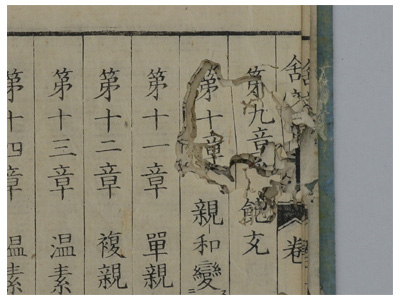 舎 卷
第九章 飽
第十章 親和變
第十一章 單親
第十二章 複親
第十三章 温素
第十四章 温素